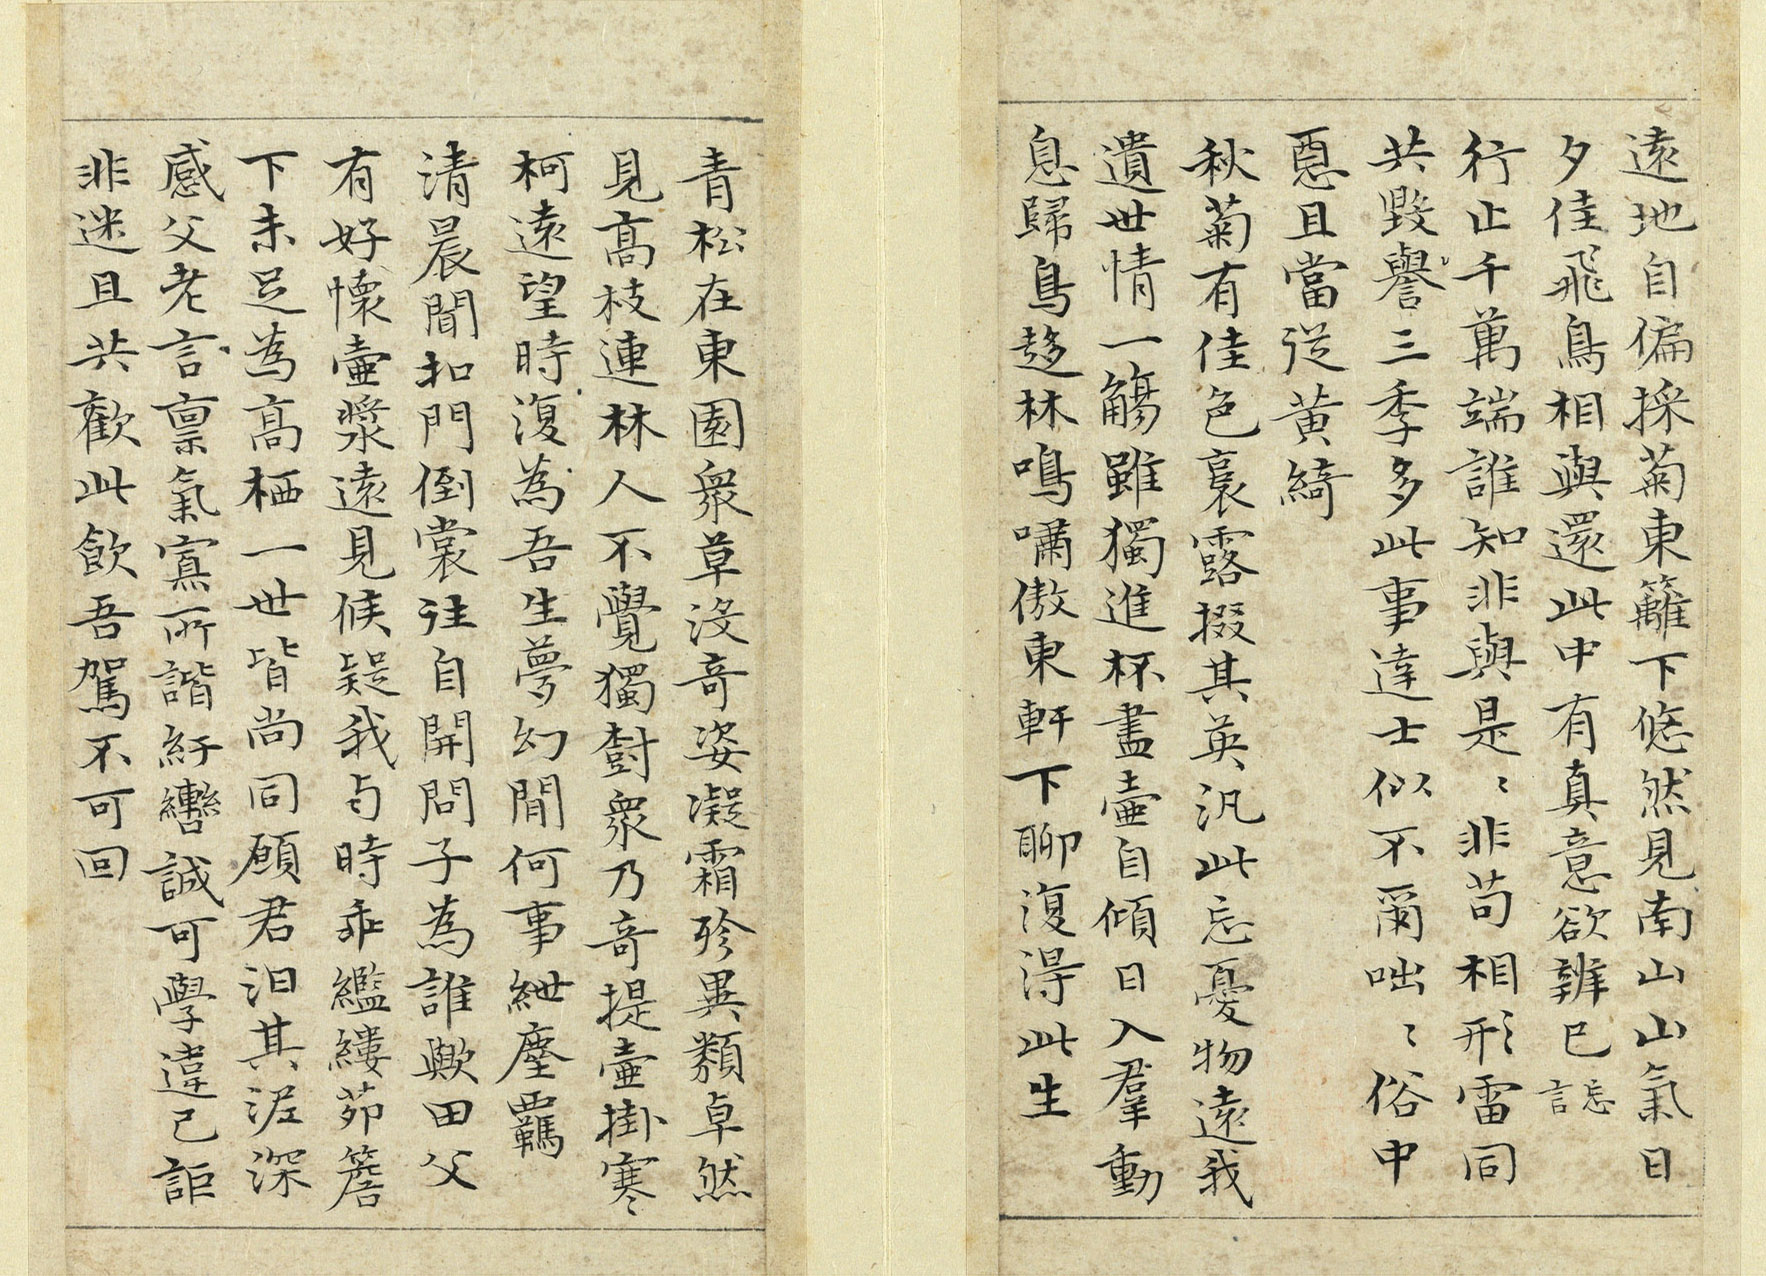 遠地自偏採菊東籬下悠然見南山山氣日
夕佳飛鳥相與還此中有真意欲辨已忘言
行止千萬端誰知非與是〻非苟相形雷同
共毀譽三季多此事達士似不爾咄〻俗中
惡且當從黃綺
秋菊有佳色裛露掇其英汎此忘憂物遠我
遺世情一觴雖獨進杯盡壺自傾日入羣動
息歸鳥趍林鳴嘯傲東軒下聊復得此生
青松在東園眾草沒奇姿凝霜殄異類卓然
見高枝連林人不覺獨樹眾乃奇提壺掛寒
柯遠望時復為吾生夢幻間何事紲塵羈
清晨聞扣門倒裳往自開問子為誰歟田父
有好懷壺漿遠見候疑我与時乖繿縷茆簷
下未足為高栖一世皆尚同願君汩其泥深
感父老言禀氣寡所諧紆轡誠可學違己詎
非迷且共歡此飲吾駕不可回